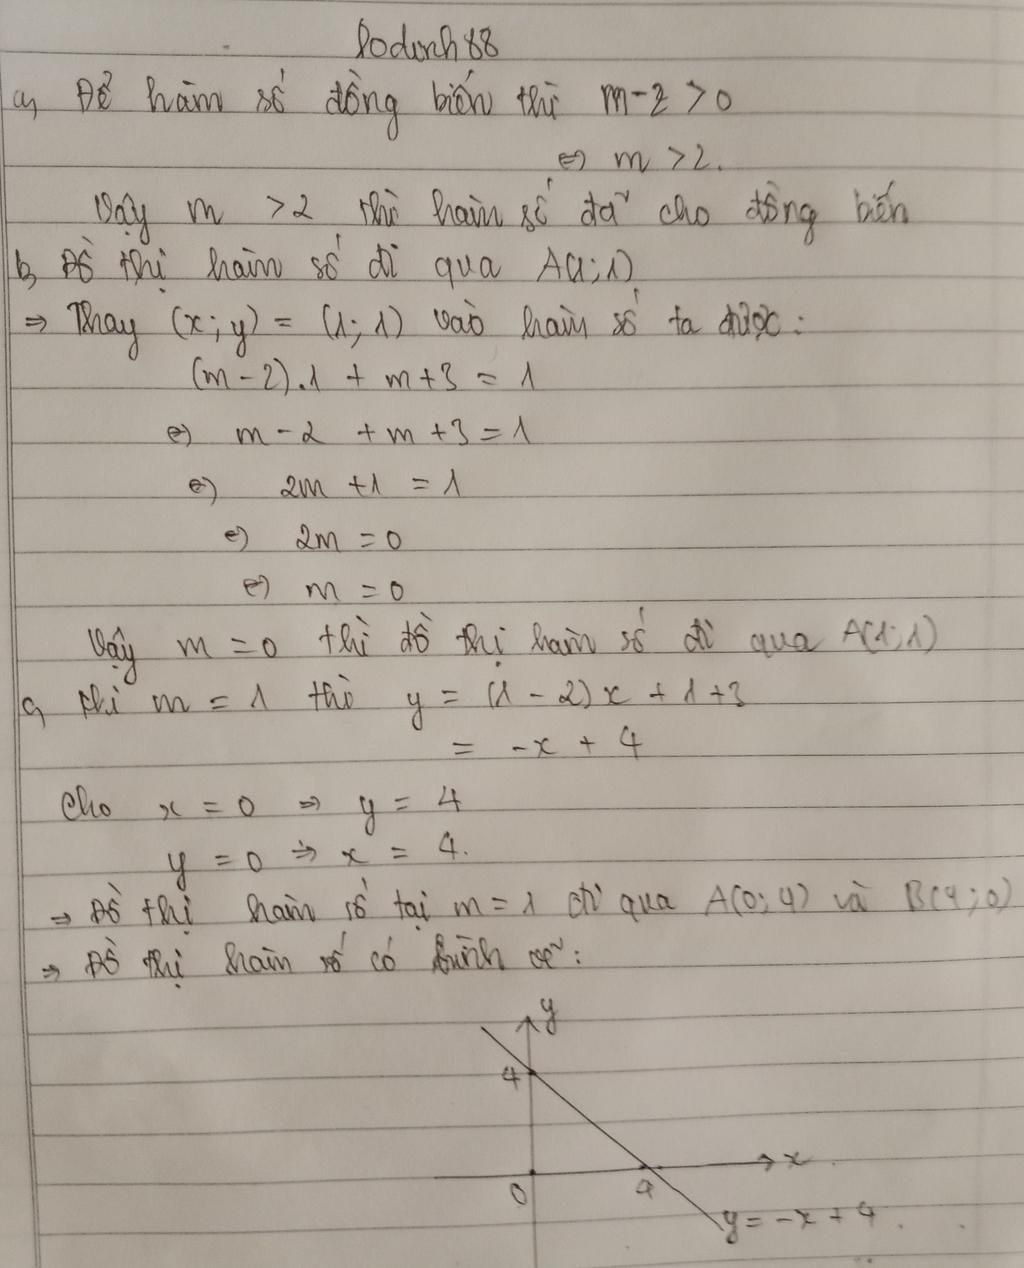 Dodinh88
a, Để hàm số đồng biến thì m-2 > 0
⇔ m > 2.
Vậy m > 2 thì hàm số đã cho đồng biến
b, Đồ thị hàm số đi qua A(1;1)
⇒ Thay (x; y) = (1; 1) vào hàm số ta được:
(m - 2).1 + m+3 = 1
⇔ m - 2 + m + 3 = 1
⇔ 2m + 1 = 1
⇔ 2m = 0
⇔ m = 0
Vậy m = 0 thì đồ thị hàm số đi qua A(1;1)
c, Khi m = 1 thì y = (1 - 2)x + 1+3
= -x + 4
Cho x = 0 ⇒ y = 4
y = 0 ⇒ x = 4.
⇒ Đồ thị hàm số tại m = 1 đi qua A(0; 4) và B(4; 0)
⇒ Đồ thị hàm số có hình vẽ:
y
4
x
0 4
y = -x + 4.